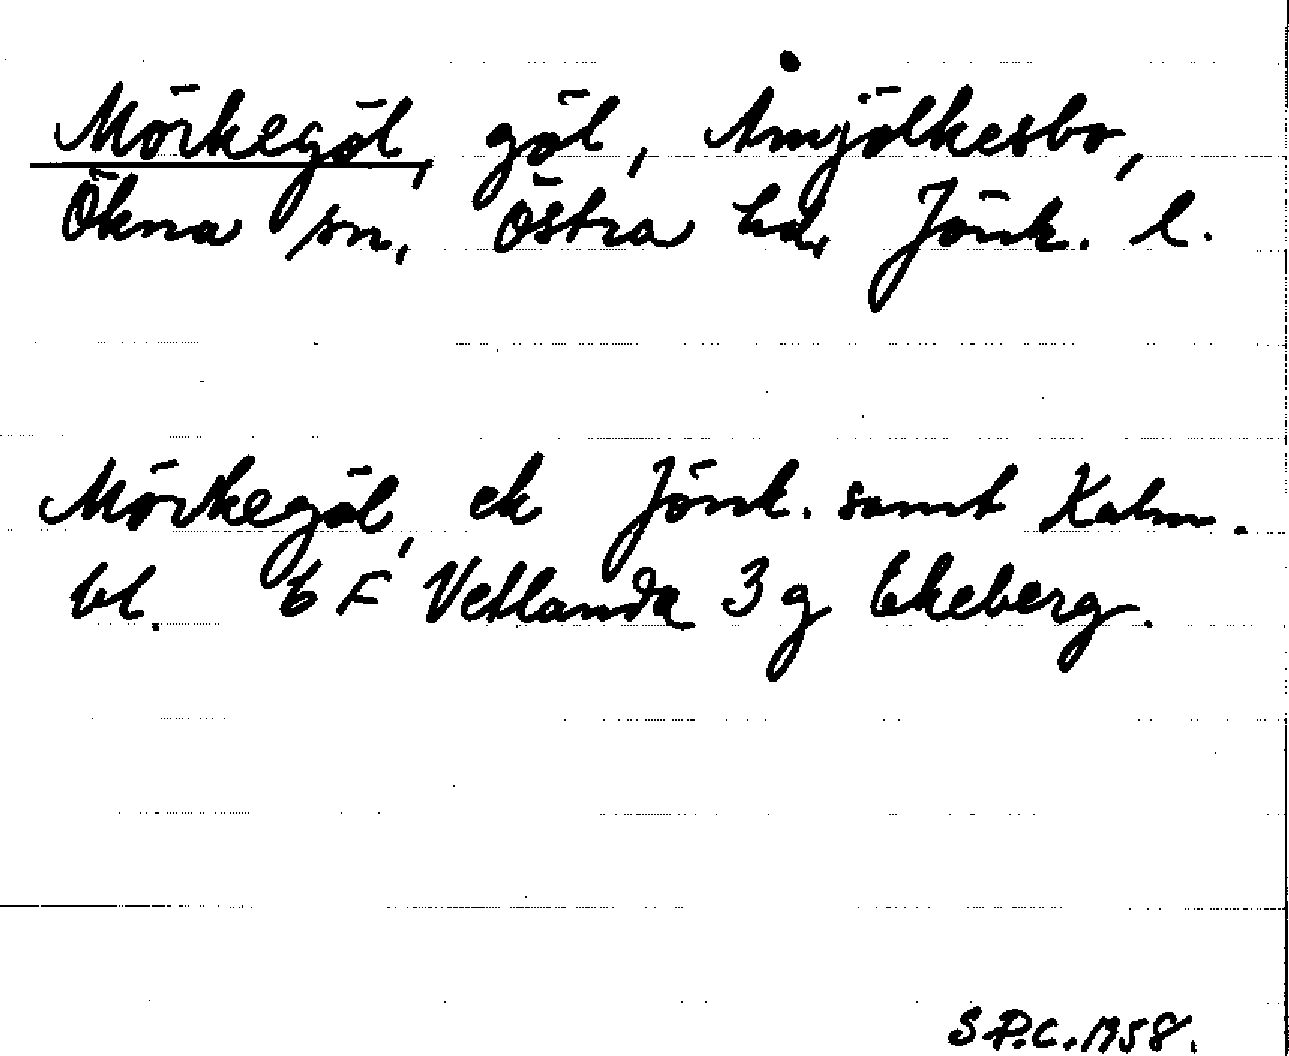 Mörkegöl, göl, Åmjölkesbo,
Ökna sn, Östra hd, Jönk. l.
Mörkegöl, ek Jönk. samt Kalm.
bl. 6 F Vetlanda 3 g Ekeberg.
S.P.C. 1958.